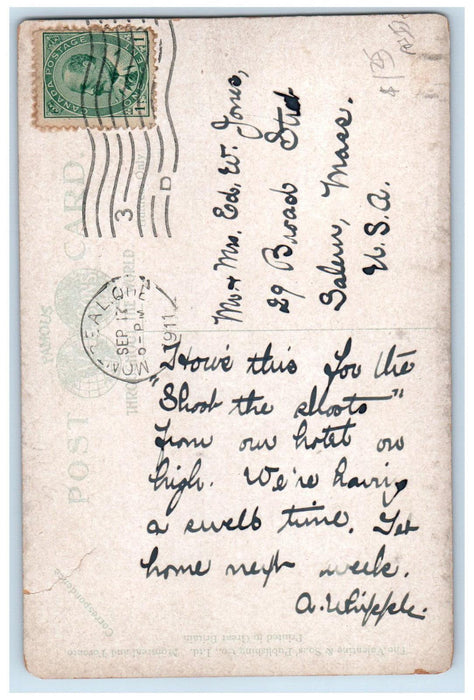 CANADA POSTAGE
MONTREAL, QUE.
SEP 12
9-PM
1911
3
D
POST CARD.
FAMOUS
THROUGHOUT THE WORLD
Correspondence
Only
Mr & Mrs. Ed. W. Jones,
29 Broad Street
Salem, Mass.
U.S.A.
How's this for the
"Shoot the shoots"
from our hotel on
high. We're having
a swell time. Get
home next week.
A. Whipple.
The Valentine & Sons' Publishing Co., Ltd. Montreal and Toronto
Printed in Great Britain